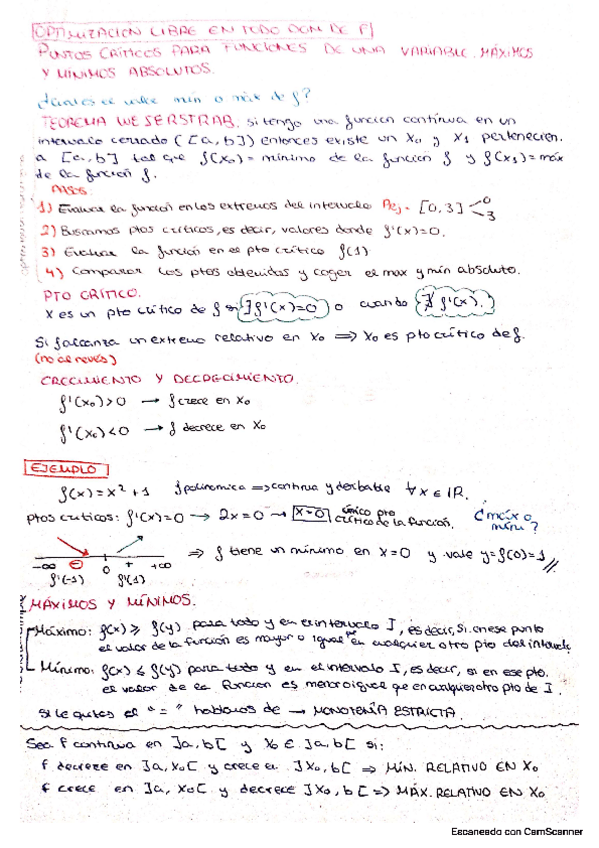 OPTIMIZACIÓN LIBRE EN TODO DOM DE f
PUNTOS CRÍTICOS PARA FUNCIONES DE UNA VARIABLE. MÁXIMOS
Y MÍNIMOS ABSOLUTOS.
¿Cuál es el valor min o máx de f?
TEOREMA WEIERSTRAB. Si tengo una función continua en un
intervalo cerrado ([a,b]) entonces existe un x₀ y x₁ pertenecien.
a [a,b] tal que f(x₀) = mínimo de la función f y f(x₁) = máx
de la función f.
1) Evaluar la función en los extremos del intervalo Pej. [0,3] 0 3
2) Buscamos ptos críticos, es decir, valores donde f'(x)=0.
3) Evaluar la función en el pto crítico f(1)
4) Comparar los ptos obtenidos y coger el max y min absoluto.
PTO CRÍTICO.
X es un pto crítico de f si ∃f'(x)=0 o cuando ∄ f'(x).
Si f alcanza un extremo relativo en x₀ ⟹ x₀ es pto crítico de f.
(no al revés)
CRECIMIENTO Y DECRECIMIENTO.
f'(x₀)>0 → f crece en x₀
f'(x₀)<0 → f decrece en x₀
EJEMPLO
f(x)=x²+1 f polinomica ⟹ continua y derivable ∀x∈IR.
Ptos críticos: f'(x)=0 → 2x=0 → x=0 único pto crítico de la función. ¿máx o mín?
-∞ ⊖ 0 + +∞ ⟹ f tiene un mínimo en x=0 y vale y=f(0)=1//
f'(-1) f'(1)
MÁXIMOS Y MÍNIMOS.
Máximo: f(x) ≥ f(y) para todo y en el intervalo I, es decir, si en ese punto
el valor de la función es mayor o igual que en cualquier otro pto del intervalo
Mínimo: f(x) ≤ f(y) para todo y en el intervalo I, es decir, si en ese pto.
el valor de la función es menor o igual que en cualquier otro pto de I.
Si le quitas el "=" hablamos de → MONOTONÍA ESTRICTA.
Sea f continua en ]a,b[ y x₀ ∈ ]a,b[ si:
f decrece en ]a,x₀[ y crece en ]x₀,b[ ⟹ MÍN. RELATIVO EN x₀
f crece en ]a,x₀[ y decrece ]x₀,b[ ⟹ MÁX. RELATIVO EN x₀
Escaneado con CamScanner